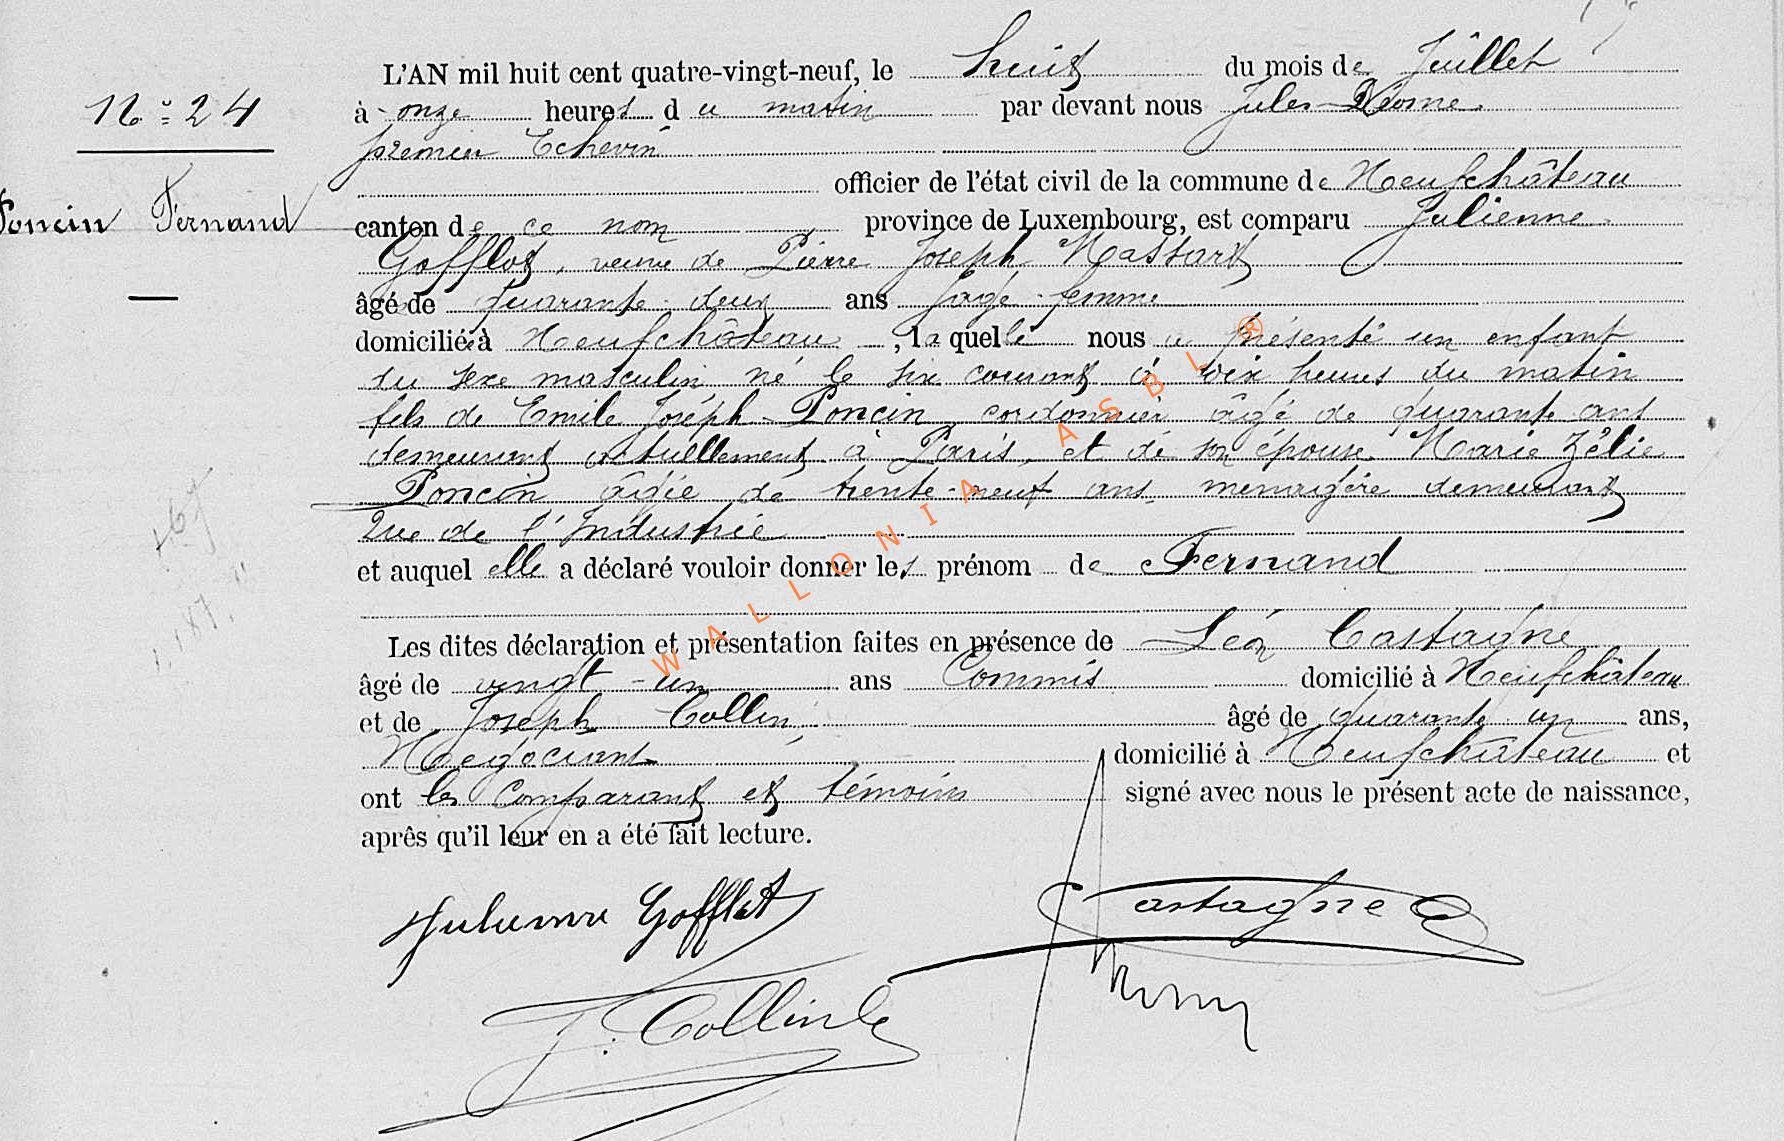 N° 24
Poncin Fernand
L'AN mil huit cent quatre-vingt-neuf, le huit du mois de Juillet
à onze heures du matin par devant nous Jules
premier Echevin
officier de l'état civil de la commune de Neufchâteau
canton de ce nom province de Luxembourg, est comparu Julienne
Gofflot, veuve de Pierre Joseph Massart
âgé de quarante-deux ans sage-femme
domiciliée à Neufchâteau, laquelle nous a présenté un enfant
du sexe masculin né le six courant à six heures du matin
fils de Emile Joséph Poncin cordonnier âgé de quarante ans
demeurant actuellement à Paris, et de son épouse Marie Zélie
Poncin âgée de trente-neuf ans, menagère demeurant
Rue de l'Industrie
et auquel elle a déclaré vouloir donner les prénom de Fernand
Les dites déclaration et présentation faites en présence de Léon Castagne
âgé de vingt-un ans Commis domicilié à Neufchâteau
et de Joseph Collin, âgé de quarante un ans,
Negociant domicilié à Neufchâteau et
ont les comparant et témoins signé avec nous le présent acte de naissance,
après qu'il leur en a été fait lecture.
Julienne Gofflot
Castagne
J. Collin
WALLONIA ASBL ®